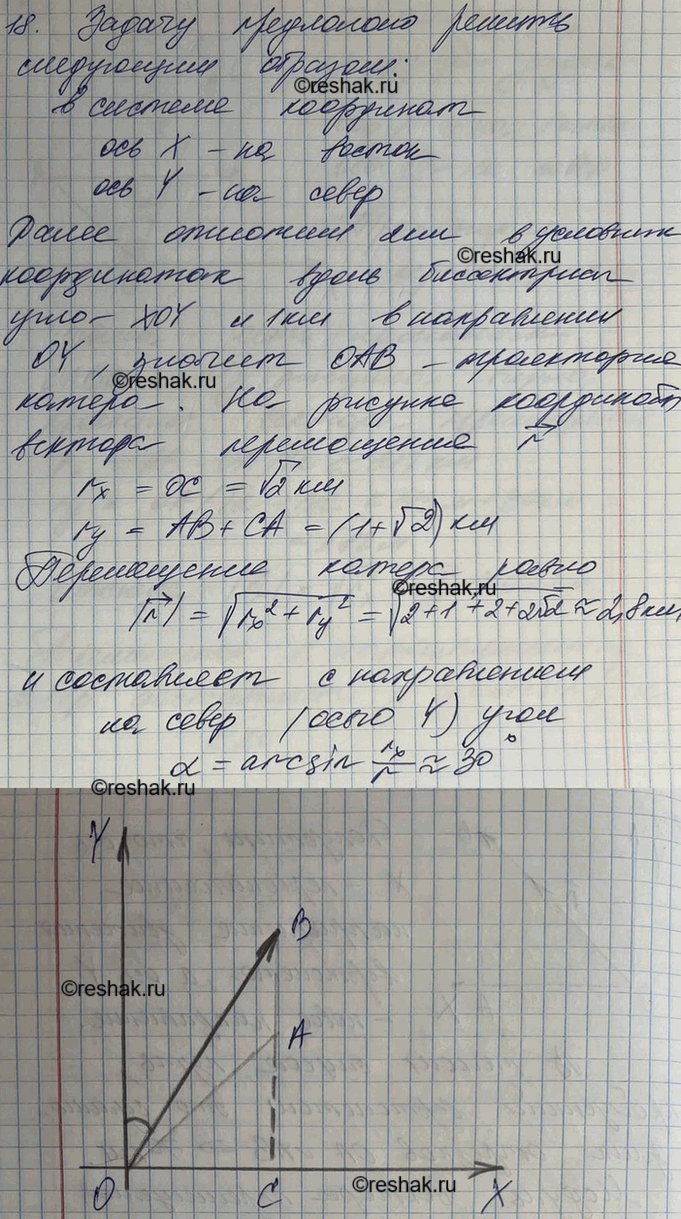 18. Задачу предложено решить
следующим образом:
©reshak.ru
в системе координат
ось X – на восток
ось Y – на север
Далее отложим 2км в условных
©reshak.ru
координатах вдоль биссектрисы
угла XOY и 1км в направлении
OY, значит OAB – траектория
©reshak.ru
катера. На рисунке координаты
вектора перемещение r⃗
rx = OC = √2 км
ry = AB + CA = (1+√2) км
Перемещение катера равно
©reshak.ru
|r⃗| = √(rx² + ry²) = √(2+1+2+2√2) ≈ 2,8км,
и составляет с направлением
на север (осью Y) угол
α = arcsin rx/r ≈ 30°
©reshak.ru
Y
B
©reshak.ru
A
O C X
©reshak.ru